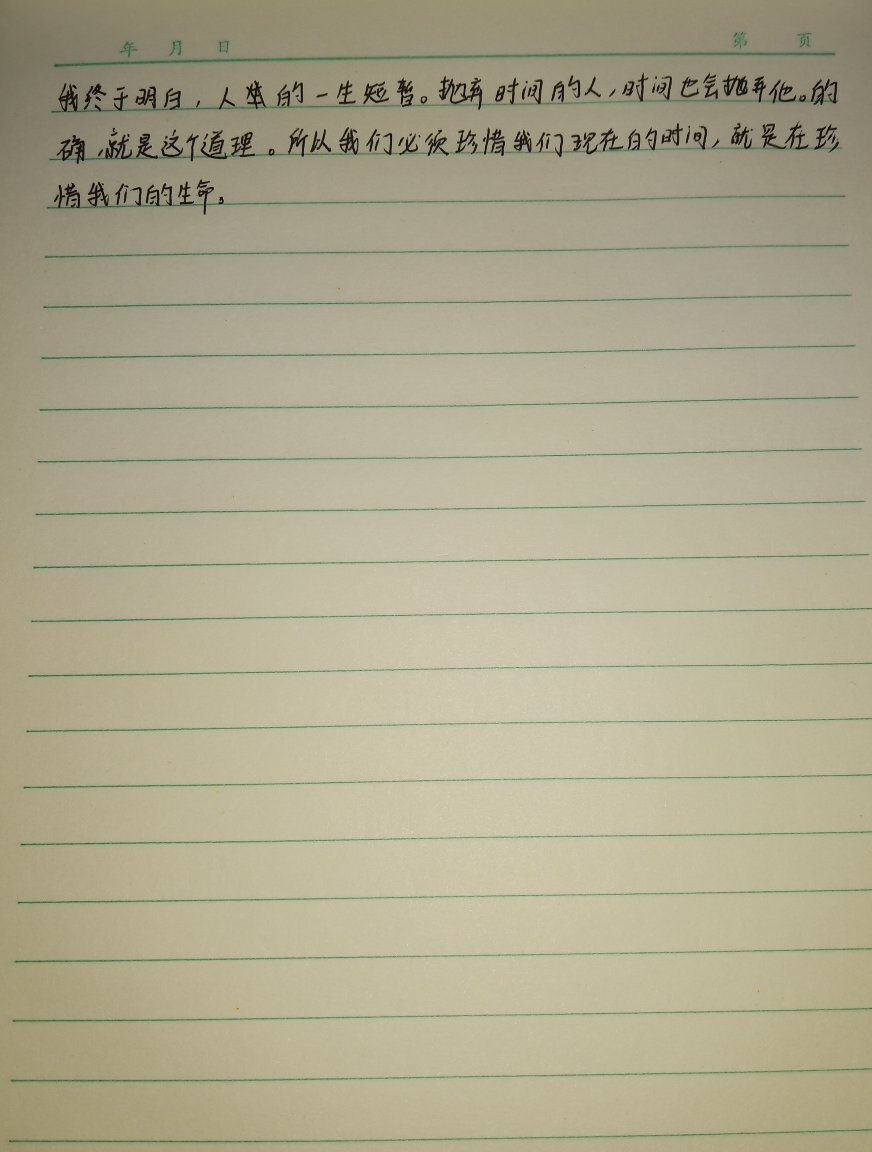 年 月 日 第 页
我终于明白，人类的一生短暂。抛弃时间的人，时间也会抛弃他。的
确，就是这个道理。所以我们必须珍惜我们现在的时间，就是在珍
惜我们的生命。